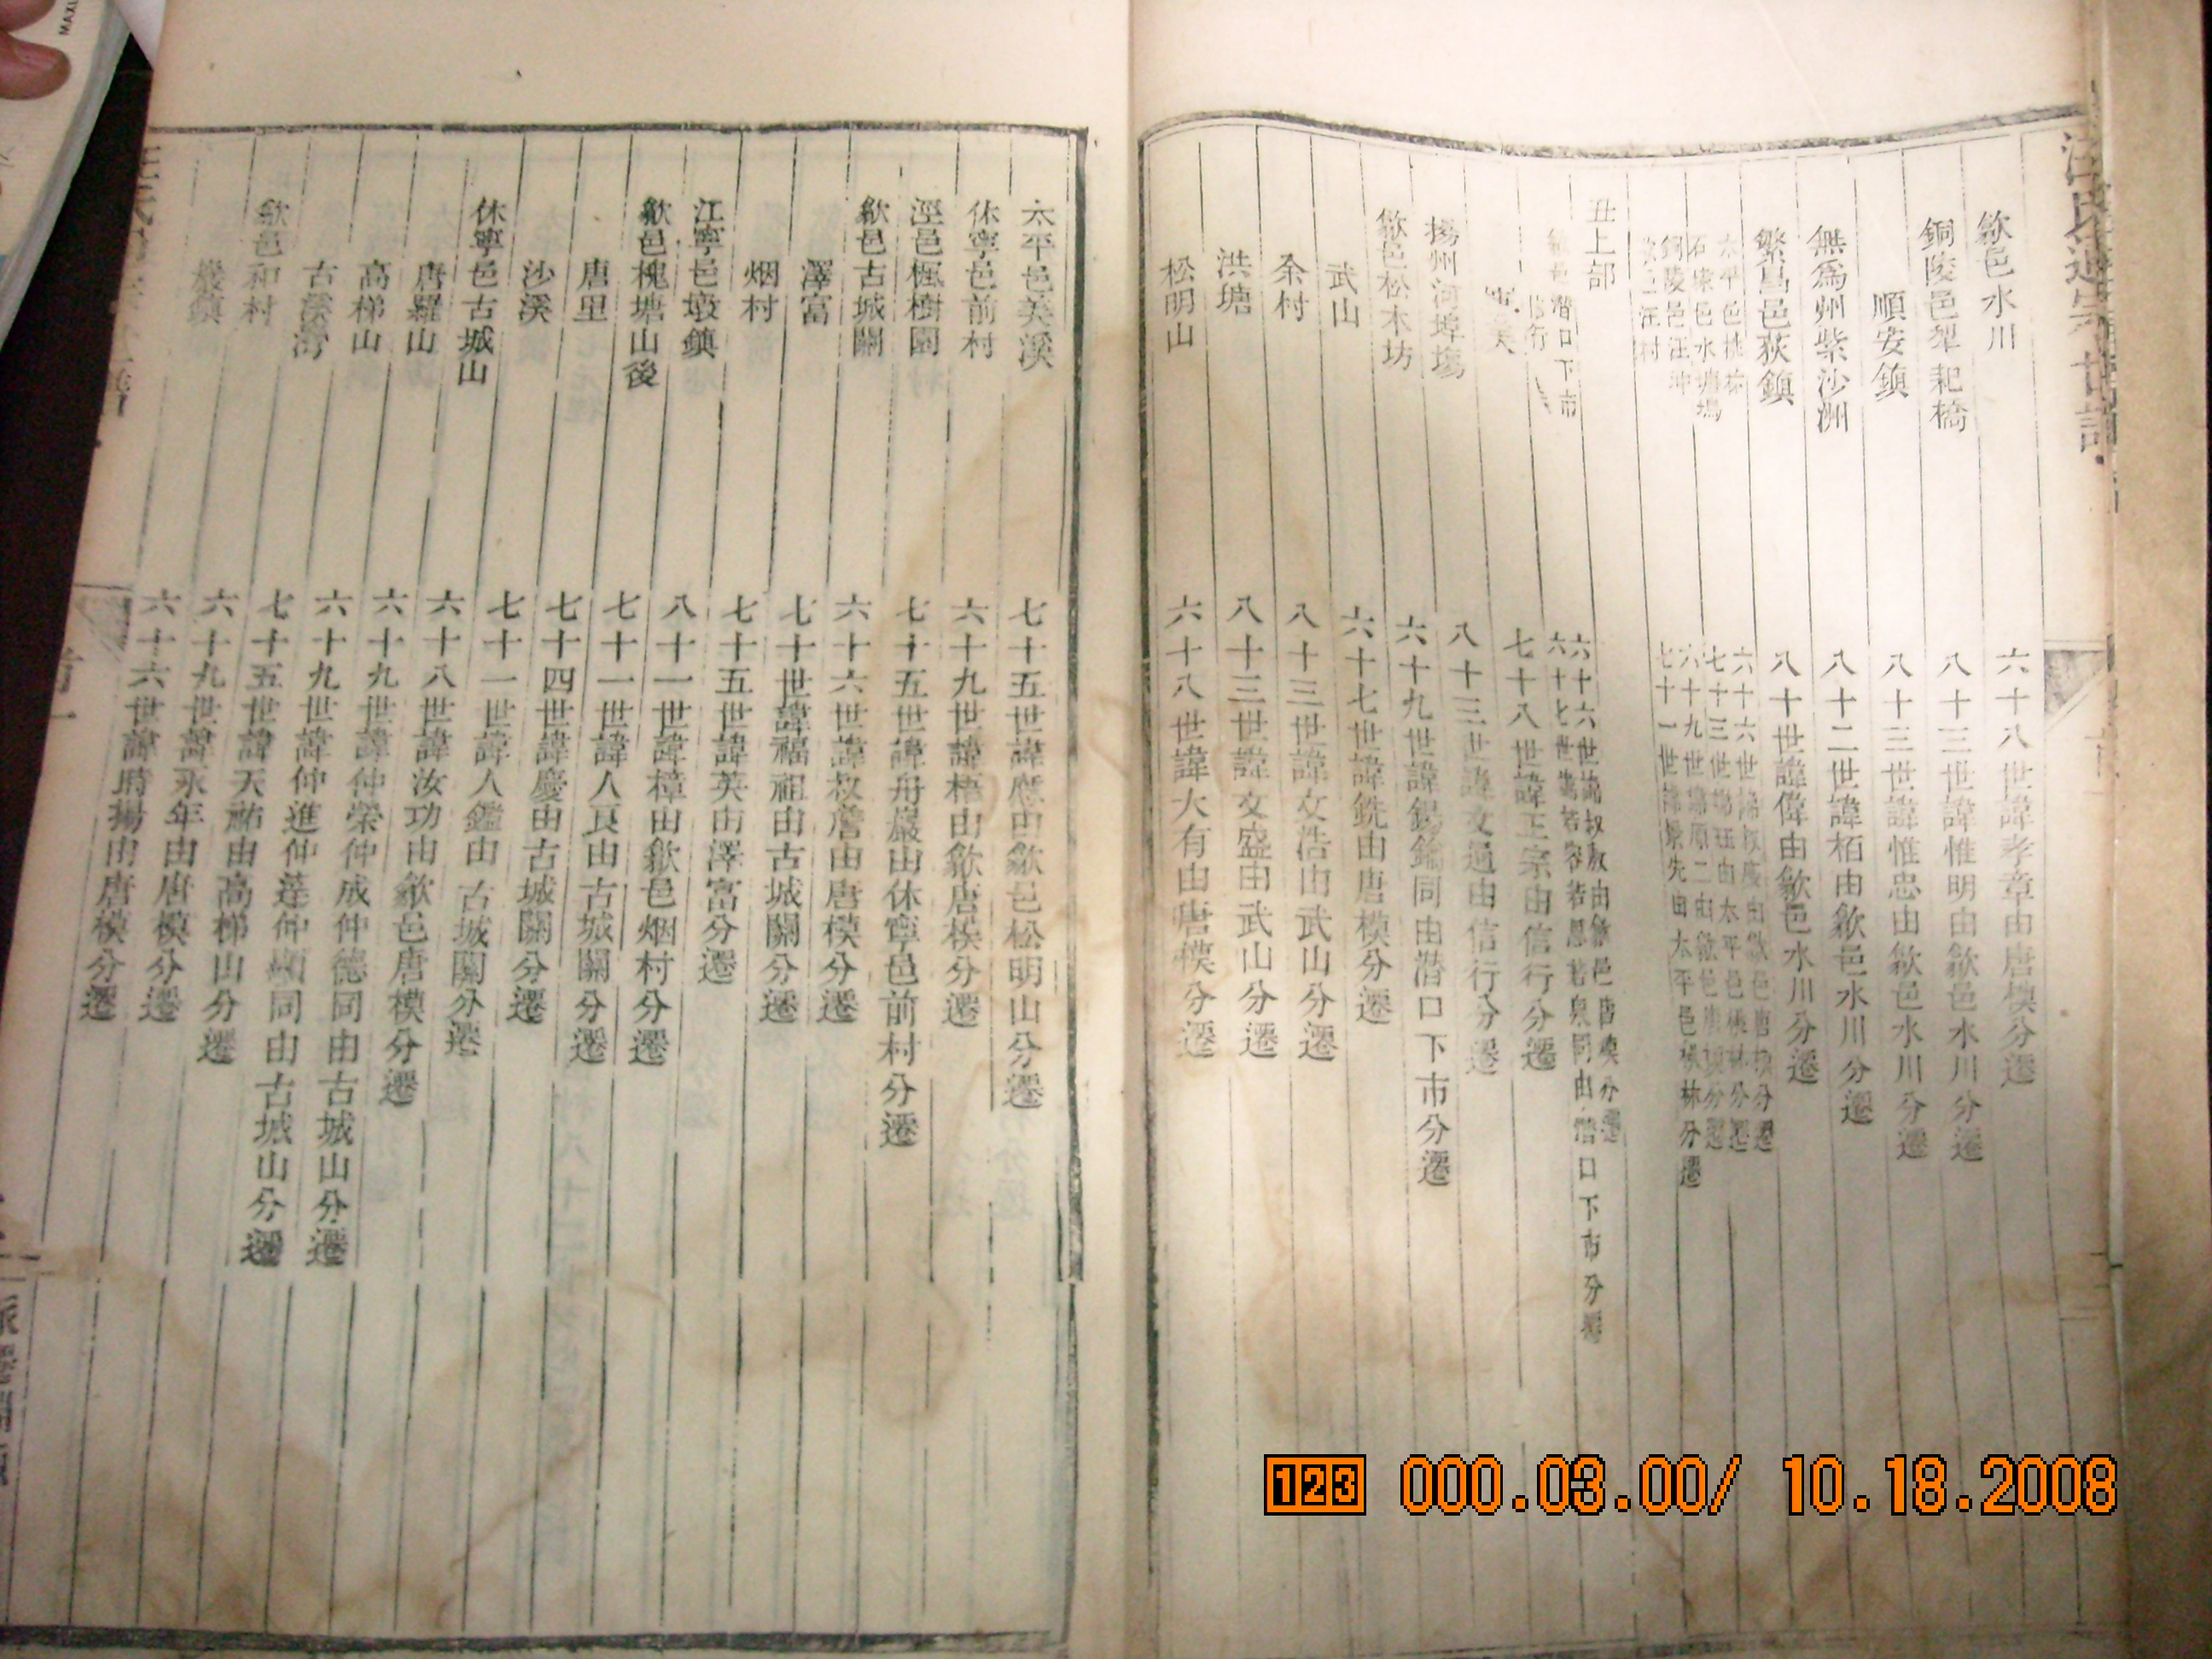 歙邑水川 六十八世諱孝章由唐模分遷
銅陵邑犁耙橋 八十三世諱惟明由歙邑水川分遷
順安鎮 八十三世諱惟忠由歙邑水川分遷
無為州紫沙洲 八十二世諱栢由歙邑水川分遷
繁昌邑荻鎮 八十世諱偉由歙邑水川分遷
太平邑桃林 六十六世諱叔慶由歙邑唐模分遷
石埭邑水塘塢 七十三世諱珏由太平邑桃林分遷
銅陵邑汪冲 六十九世諱原二由歙邑唐模分遷
汪村 七十一世諱 先由太平邑桃林分遷
丑上部
歙邑潛口下市 六十六世諱叔敖由歙邑唐模分遷
六十七世諱若容若思若泉同由潛口下市分遷
信行
七十八世諱 宗由信行分遷
揚州河埠塲 八十三世諱文通由信行分遷
歙邑松木坊 六十九世諱錫 同由潛口下市分遷
武山 六十七世諱銑由唐模分遷
余村 八十三世諱文浩由武山分遷
洪塘 八十三世諱文盛由武山分遷
松明山 六十八世諱大有由唐模分遷
太平邑美溪 七十五世諱應由歙邑松明山分遷
休寧邑前村 六十九世諱梧由歙唐模分遷
涇邑楓樹園 七十五世諱舟巖由休寧邑前村分遷
歙邑古城關 六十六世諱叔詹由唐模分遷
澤富 七十世諱福祖由古城關分遷
烟村 七十五世諱英由澤富分遷
江寧邑墩鎮 八十一世諱樟由歙邑烟村分遷
歙邑槐塘山後 七十一世諱人良由古城關分遷
唐里 七十四世諱慶由古城關分遷
沙溪 七十一世諱人鑑由古城關分遷
休寧邑古城山 六十八世諱汝功由歙邑唐模分遷
唐羅山 六十九世諱仲榮仲成仲德同由古城山分遷
高梯山 六十九世諱仲進仲蓬仲 同由古城山分遷
古溪灣 七十五世諱天祐由高梯山分遷
歙邑和村 六十九世諱永年由唐模分遷
巖鎮 六十六世諱時揚由唐模分遷
123 000.03.00/ 10.18.2008